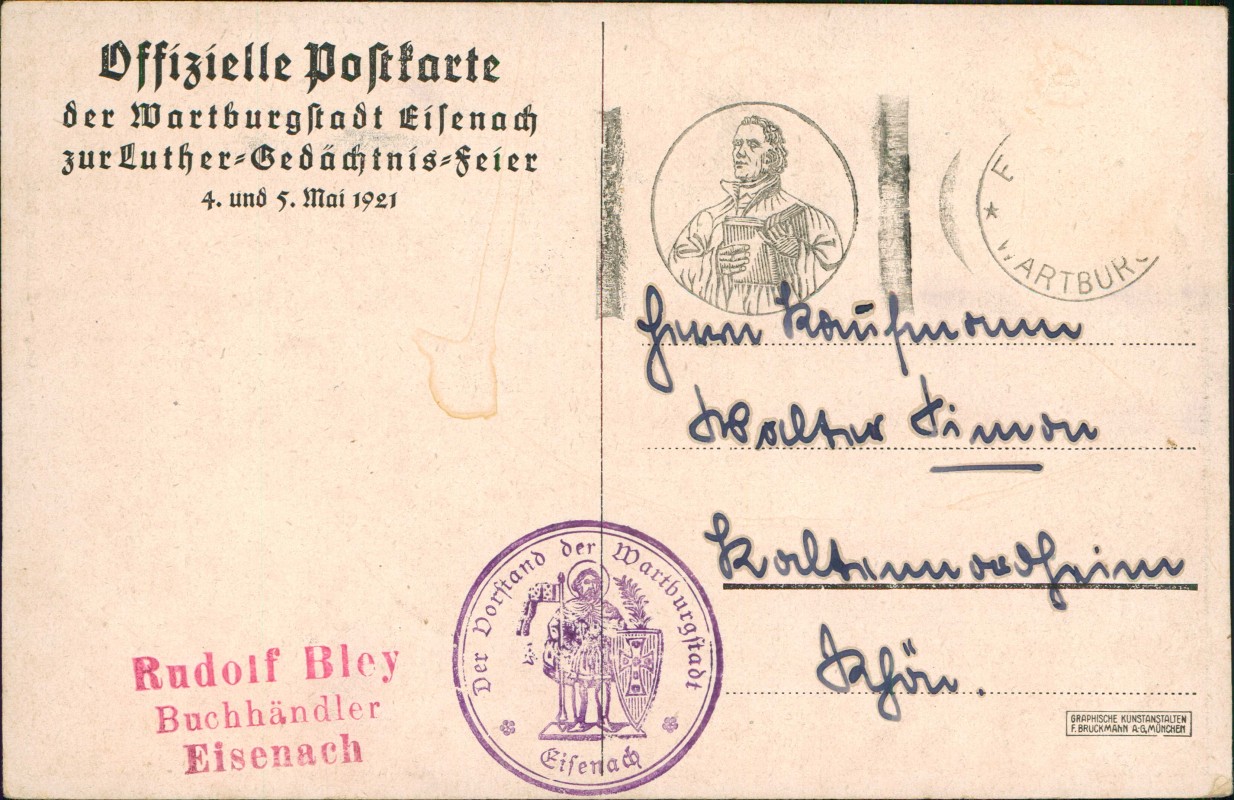 Offizielle Postkarte
der Wartburgstadt Eisenach
zur Luther-Gedächtnis-Feier
4. und 5. Mai 1921
E
* WARTBURG
Herrn Kaufmann
Walter Simon
Kaltennordheim
Rhön.
Der Vorstand der Wartburgstadt
Eisenach
Rudolf Bley
Buchhändler
Eisenach
GRAPHISCHE KUNSTANSTALTEN
F. BRUCKMANN A-G, MÜNCHEN